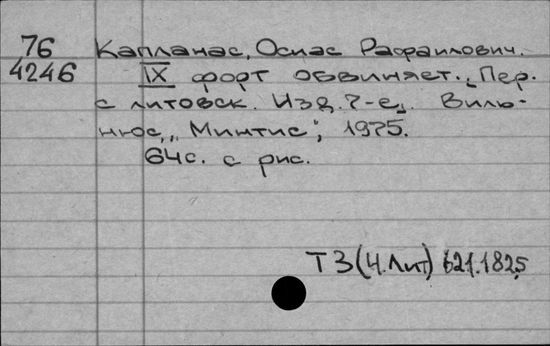 76 Капланас, Осиас Рафаилович.
4246 IX форт обвиняет. [Пер.
с литовск. Изд. 7-е]. Виль-
нюс, „Минтис", 1975.
64 с. с рис.
Т3(4.Лит)621.1825